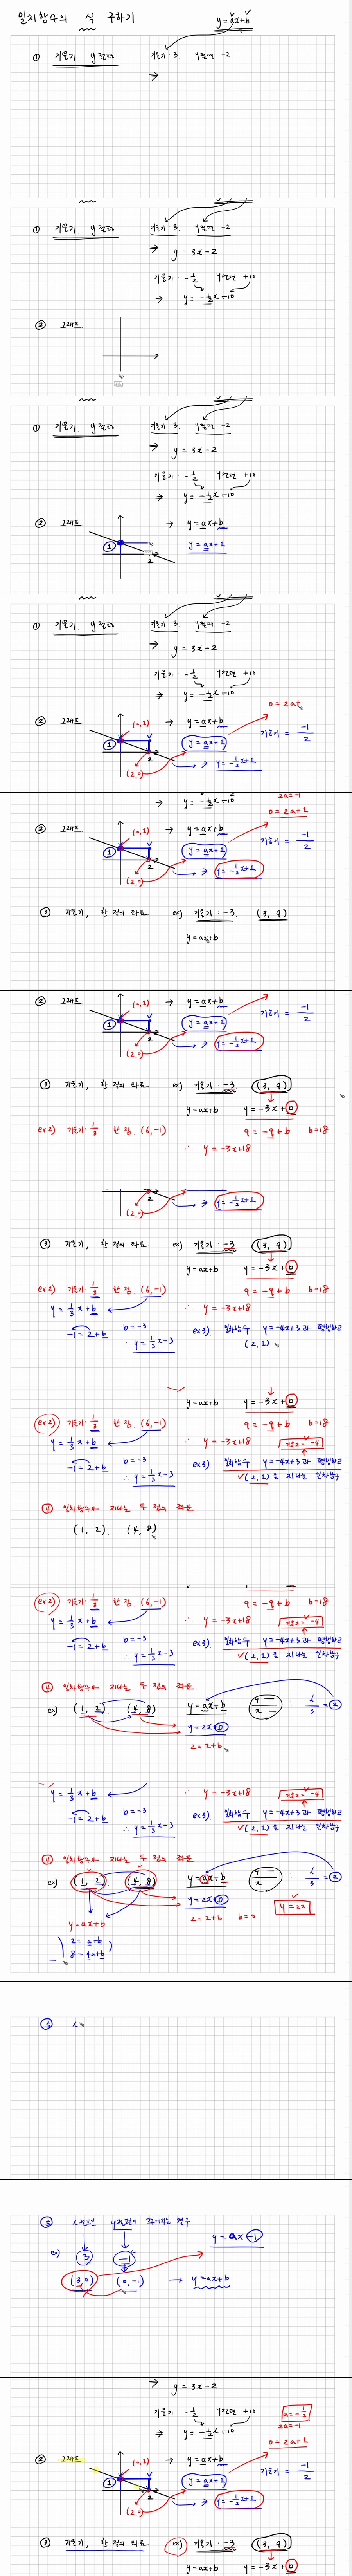 일차함수의 식 구하기
y = ax+b
① 기울기, y절편 기울기 3, y절편 -2
→
① 기울기, y절편 기울기 3, y절편 -2
→ y = 3x-2
기울기: -1/2 y절편 +10
→ y = -1/2x+10
② 그래프
① 기울기, y절편 기울기 3, y절편 -2
→ y = 3x-2
기울기: -1/2 y절편 +10
→ y = -1/2x+10
② 그래프 → y = ax+b
1 2 y = ax+1
① 기울기, y절편 기울기 3, y절편 -2
→ y = 3x-2
기울기: -1/2 y절편 +10
→ y = -1/2x+10
0 = 2a+
② 그래프 (0,1) → y = ax+b
1 2 y = ax+1 기울기 = -1/2
(2,0) → y = -1/2x+1
→ y = -1/2x+10 2a=-1
0 = 2a+1
② 그래프 (0,1) → y = ax+b
1 2 y = ax+1 기울기 = -1/2
(2,0) → y = -1/2x+1
③ 기울기, 한 점의 좌표 ex) 기울기 -3, (3, 9)
y = ax+b
② 그래프 (0,1) → y = ax+b
1 2 y = ax+1 기울기 = -1/2
(2,0) → y = -1/2x+1
③ 기울기, 한 점의 좌표 ex) 기울기 -3 (3, 9)
y = ax+b y = -3x+b
ex2) 기울기 1/3 한 점 (6,-1) 9 = -9+b b=18
∴ y = -3x+18
(2,0) → y = -1/2x+1
③ 기울기, 한 점의 좌표 ex) 기울기 -3 (3, 9)
y = ax+b y = -3x+b
ex2) 기울기 1/3 한 점 (6,-1) 9 = -9+b b=18
y = 1/3x+b ∴ y = -3x+18
-1 = 2+b b = -3 ex3) 일차함수 y = -4x+3과 평행하고
∴ y = 1/3x-3 (2,2)
y = ax+b y = -3x+b
ex2) 기울기 1/3 한 점 (6,-1) 9 = -9+b b=18
y = 1/3x+b ∴ y = -3x+18 기울기 = -4
-1 = 2+b b = -3 ex3) 일차함수 y = -4x+3과 평행하고
∴ y = 1/3x-3 (2,2)를 지나는 일차함수
④ 일차함수가 지나는 두 점의 좌표
(1, 2) (4, 8)
ex2) 기울기 1/3 한 점 (6,-1) 9 = -9+b b=18
y = 1/3x+b ∴ y = -3x+18 기울기 = -4
-1 = 2+b b = -3 ex3) 일차함수 y = -4x+3과 평행하고
∴ y = 1/3x-3 (2,2)를 지나는 일차함수
④ 일차함수가 지나는 두 점의 좌표
ex) (1, 2) (4, 8) y = ax+b y/x : 6/3 = 2
y = 2x+b
2 = 2+b
y = 1/3x+b ∴ y = -3x+18 기울기 = -4
-1 = 2+b b = -3 ex3) 일차함수 y = -4x+3과 평행하고
∴ y = 1/3x-3 (2,2)를 지나는 일차함수
④ 일차함수가 지나는 두 점의 좌표
ex) (1, 2) (4, 8) y = ax+b y/x : 6/3 = 2
y = 2x+b
y = ax+b 2 = 2+b b = 0 y = 2x
2 = a+b
8 = 4a+b
⑤ x
⑤ x절편 y절편이 주어지는 경우
ex) 3 -1 y = ax-1
(3,0) (0,-1) → y = ax+b
→ y = 3x-2
기울기: -1/2 y절편 +10 a = -1/2
→ y = -1/2x+10 2a=-1
0 = 2a+1
② 그래프 (0,1) → y = ax+b
1 2 y = ax+1 기울기 = -1/2
(2,0) → y = -1/2x+1
③ 기울기, 한 점의 좌표 ex) 기울기 -3 (3, 9)
y = ax+b y = -3x+b